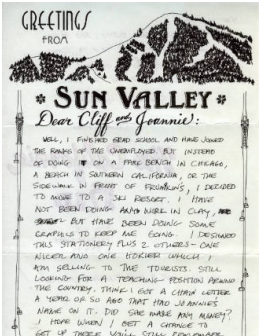 GREETINGS
FROM
* SUN VALLEY *
Dear Cliff and Joannie:
WELL, I FINISHED GRAD SCHOOL AND HAVE JOINED
THE RANKS OF THE UNEMPLOYED. BUT INSTEAD
OF DOING IT ON A PARK BENCH IN CHICAGO,
A BEACH IN SOUTHERN CALIFORNIA, OR THE
SIDEWALK IN FRONT OF FRUMKINS, I DECIDED
TO MOVE TO A SKI RESORT. I HAVE
NOT BEEN DOING ANY WORK IN CLAY,
BUT HAVE BEEN DOING SOME
GRAPHICS TO KEEP ME GOING. I DESIGNED
THIS STATIONERY PLUS 2 OTHERS - ONE
NICER AND ONE HOKIER WHICH I
AM SELLING TO THE TOURISTS. STILL
LOOKING FOR A TEACHING POSITION AROUND
THE COUNTRY. THINK I GOT A CHAIN LETTER
A YEAR OR SO AGO THAT HAD JOANNIES
NAME ON IT. DID SHE MAKE ANY MONEY?
I HOPE WHEN I GET A CHANCE TO
GET UP THERE YOU'LL STILL